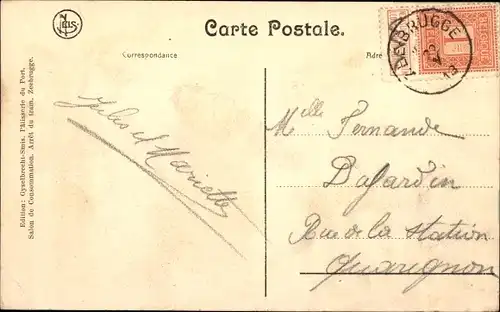 NELS
Carte Postale.
Correspondance
Adre
ZEEBRUGGE
13
Edition: Gyselbrecht-Smis. Pâtisserie du Port.
Salon de Consommation. Arrêt du tram. Zeebrugge.
Jules et Mariette
Mlle Fernande
Dafardin
Rue de la Station
Quaregnon